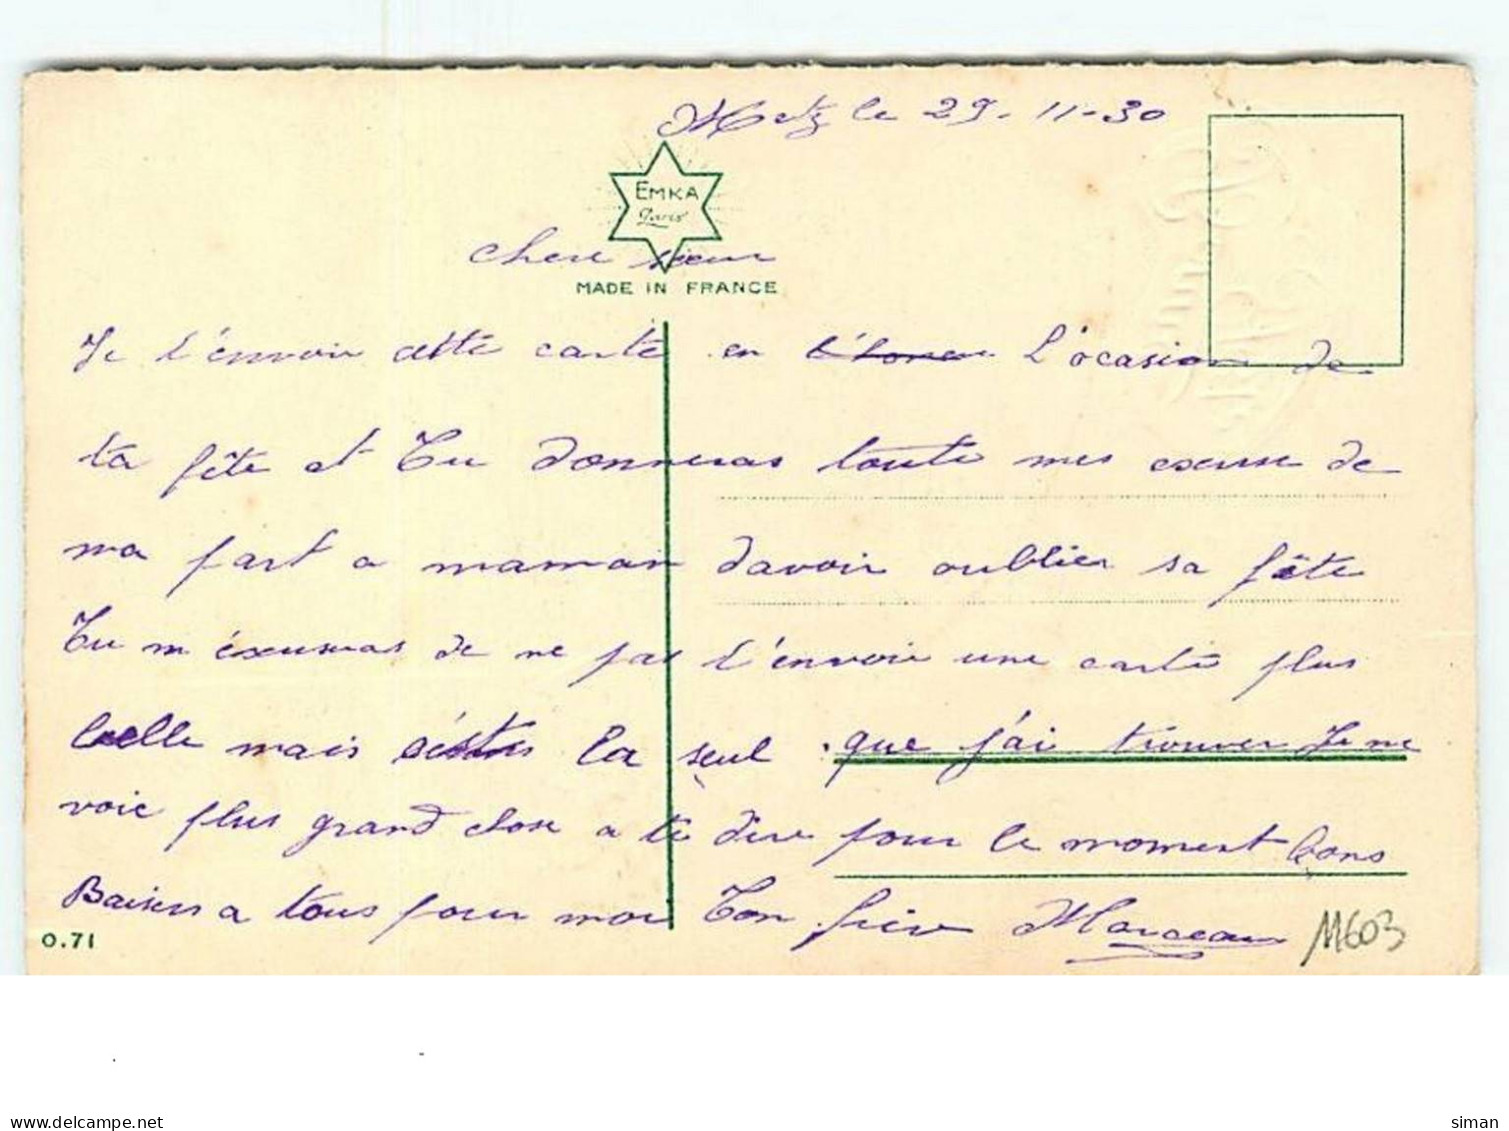 Metz le 29-11-30
EMKA
Paris
chere sœur
MADE IN FRANCE
Je t'envoir cette carte en l'ocasion de
ta fête et Tu donneras toute mes excuse de
ma part a maman davoir oublier sa fête
Tu m éxcuseras de ne pas t'envoir une carte plus
belle mais la seul que j'ai trouver Je ne
voie plus grand chose a te dire pour le moment bons
Baisers a tous pour moi Ton frère Marceau
11603
0.71
delcampe.net
siman